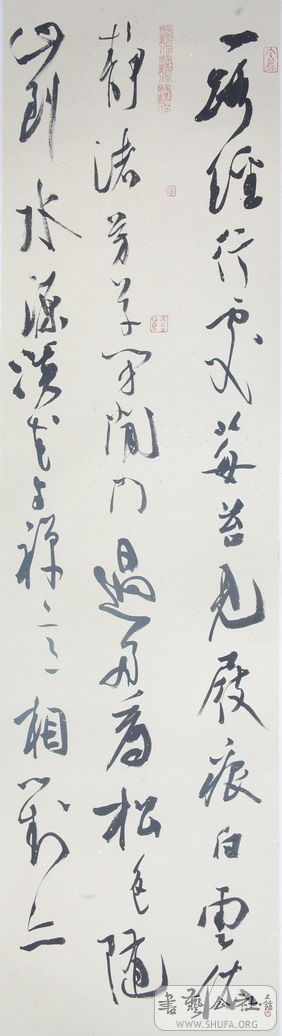 一路經行處莓苔見屐痕白雲依
靜渚芳草閉閒門過雨看松色隨
山到水源溪花与禪意相對亦
書藝公社
WWW.SHUFA.ORG